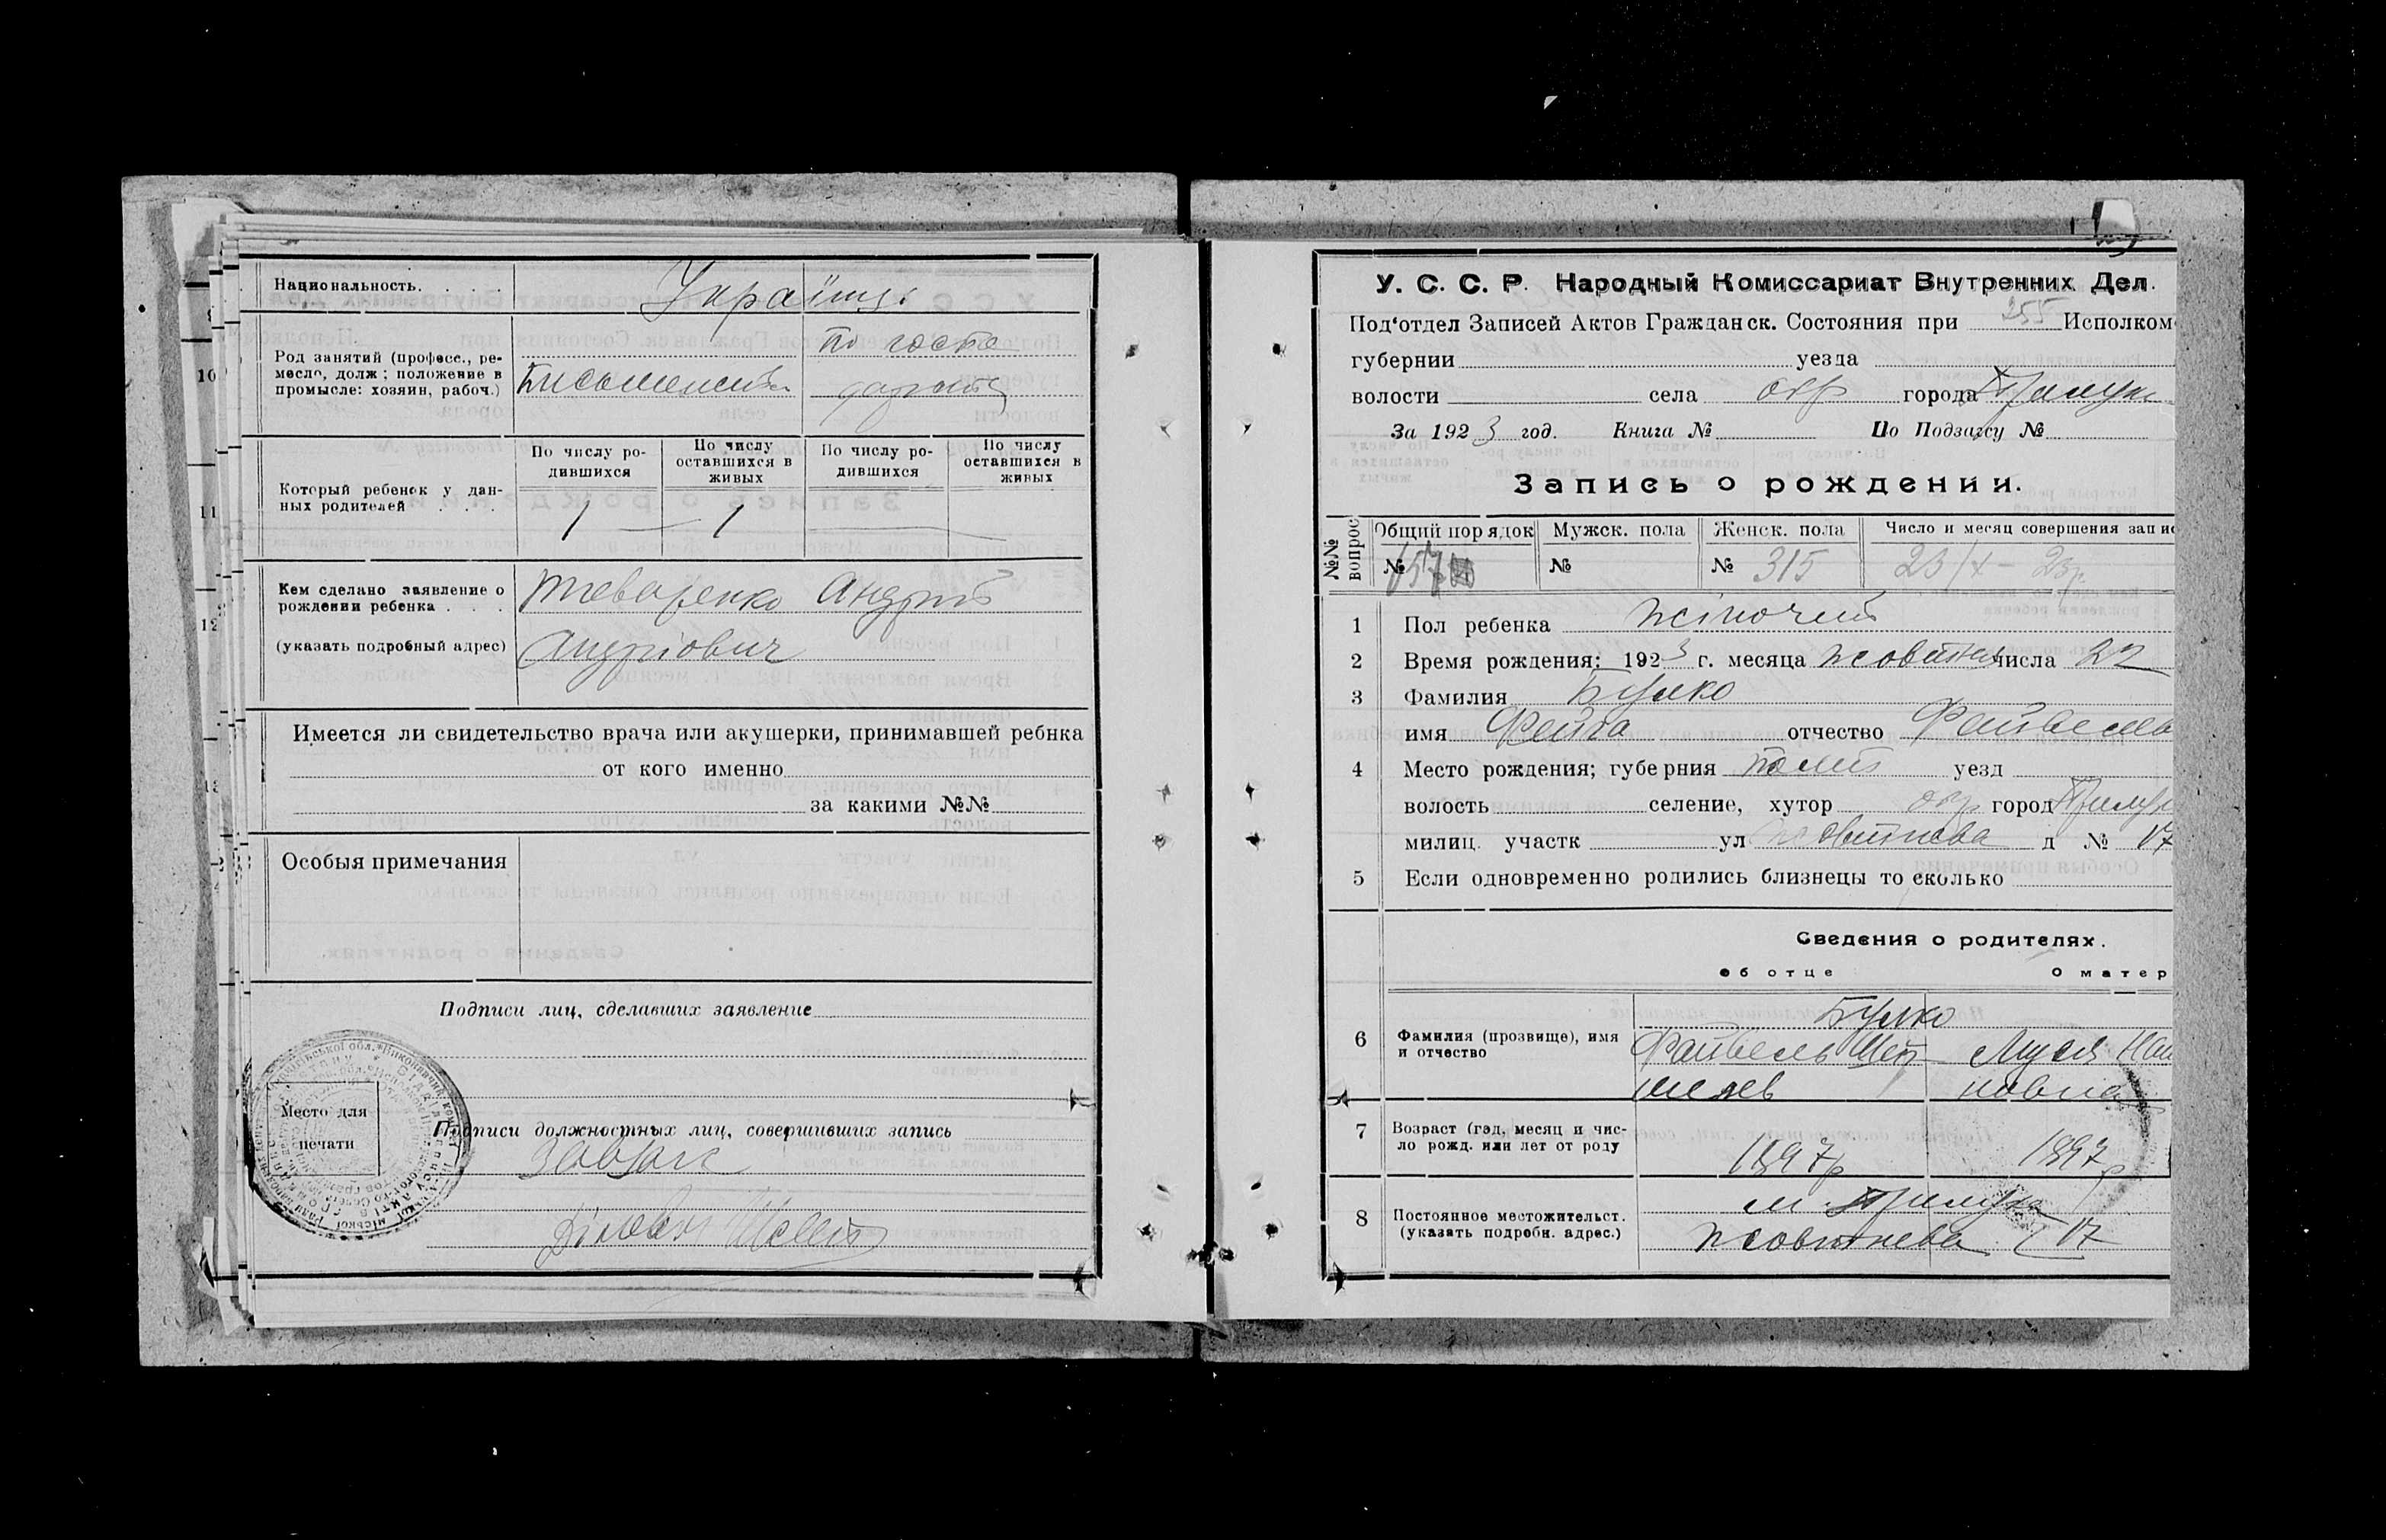 Национальность. . . . .
Українці
Род занятий (професс., ре-
месло, долж; положение в
промысле: хозяин, рабоч.)
по госпо
дарству
Который ребенок у дан-
ных родителей . . .
По числу ро-
дившихся
По числу
оставшихся в
живых
По числу ро-
дившихся
По числу
оставшихся в
живых
1 — 1
Кем сделано заявление о
рождении ребенка . . .
(указать подробный адрес)
Андрій
Андріович
Имеется ли свидетельство врача или акушерки, принимавшей ребнка
от кого именно
за какими №№
Особыя примечания
Подписи лиц, сделавших заявление
Место для
печати
Подписи должностных лиц, совершивших запись
Завзагс
10
11
12
У. С. С. Р. Народный Комиссариат Внутренних Дел.
255
Под‘отдел Записей Актов Гражданск. Состояния при Исполком
губернии уезда
волости села окр города Прилуки
За 1923 год. Книга № По Подзагсу №
Запись о рождении.
№№ вопрос
Общий порядок Мужск. пола Женск. пола Число и месяц совершения запис
№ 657 № № 315 23/X – 23р.
1 Пол ребенка жіночий
2 Время рождения: 1923 г. месяца жовтня числа 22
3 Фамилия Булко
имя Фейга отчество Файвелев
4 Место рождения; губерния Полт уезд
волость селение, хутор окр город Прилуки
милиц. участк ул Жовтнева д № 17
5 Если одновременно родились близнецы то сколько
Сведения о родителях.
об отце О матер
6 Фамилия (прозвище), имя
и отчество
Булко
Файвель Мей Муся
шелев новна
7 Возраст (год, месяц и чис-
ло рожд. или лет от роду
1897р 1897р
8 Постоянное местожительст.
(указать подробн. адрес.)
м. Прилуки
Жовтнева 17